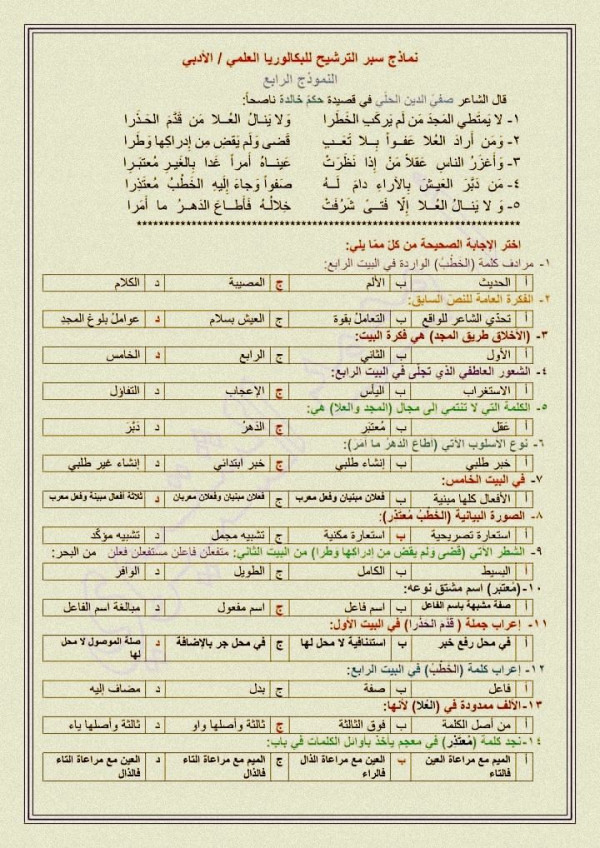 نماذج سبر الترشيح للبكالوريا العلمي / الأدبي
النموذج الرابع
قال الشاعر صفيّ الدين الحلّي في قصيدة حكمَ خالدة ناصحاً:
١- لا يَمتَطي المَجدَ مَن لَم يَركَبِ الخَطَرا وَلا يَنالُ العُـلا مَن قَدَّمَ الحَـذَرا
٢- وَمَن أَرادَ العُلا عَفـواً بِـلا تَعَـبٍ قَضى وَلَم يَقضِ مِن إِدراكِها وَطَرا
٣- وَأَغزَرُ الناسِ عَقلاً مَنْ إذا نَظَرَتْ عَينـاهُ أَمراً غَدا بِالغَيرِ مُعتَبـِرا
٤- مَن دَبَّرَ العَيشَ بِـالآراءِ دامَ لَـهُ صَفواً وَجاءَ إِلَيهِ الخَطْبُ مُعتَذِرا
٥- وَ لا يَنـالُ العُـلا إِلّا فَتـىً شَرُفَتْ خِلالُـهُ فَـأَطـاعَ الدَهـرُ ما أَمَرا
********************************************
اختر الإجابة الصحيحة من كلّ ممّا يلي:
١- مرادف كلمة (الخَطْبُ) الواردة في البيت الرابع:
أ الحديث ب الألم ج المصيبة د الكلام
٢- الفكرة العامة للنصّ السابق:
أ تحدّي الشاعر للواقع ب التعاملُ بقوة ج العيش بسلام د عواملُ بلوغ المجدِ
٣- (الأخلاق طريق المجد) هي فكرة البيت:
أ الأول ب الثاني ج الرابع د الخامس
٤- الشعور العاطفي الذي تجلّى في البيت الرابع:
أ الاستغراب ب اليأس ج الإعجاب د التفاؤل
٥- الكلمة التي لا تنتمي إلى مجال (المجد والعلا) هي:
أ عَقل ب مُعتبَر ج الدَهرُ د دَبَّرَ
٦- نوع الأسلوب الآتي (أطاعَ الدهرُ ما أمَرَ):
أ خبر طلبي ب إنشاء طلبي ج خبر ابتدائي د إنشاء غير طلبي
٧- في البيت الخامس:
أ الأفعال كلها مبنية ب فعلان مبنيان وفعل معرب ج فعلان مبنيان وفعلان معربان د ثلاثة أفعال مبينة وفعل معرب
٨- الصورة البيانية (الخَطْبُ مُعتَذِر):
أ استعارة تصريحية ب استعارة مكنية ج تشبيه مجمل د تشبيه مؤكّد
٩- الشطر الآتي (قَضى وَلَم يَقضِ مِن إدراكِها وَطَرا) من البيت الثاني: متفعلن فاعلن مستفعلن فعلن من البحر:
أ البسيط ب الكامل ج الطويل د الوافر
١٠- (مُعتبر) اسم مشتق نوعه:
أ صفة مشبهة باسم الفاعل ب اسم فاعل ج اسم مفعول د مبالغة اسم الفاعل
١١- إعراب جملة ( قدَّمَ الحَذرا) في البيت الأول:
أ في محل رفع خبر ب استنافية لا محل لها ج في محل جر بالإضافة د صلة الموصول لا محل لها
١٢- إعراب كلمة (الخَطْبُ) في البيت الرابع:
أ فاعل ب صفة ج بدل د مضاف إليه
١٣- الألف ممدودة في (العُلا) لأنها:
أ من أصل الكلمة ب فوق الثالثة ج ثالثة وأصلها واو د ثالثة وأصلها ياء
١٤- نجد كلمة (مُعتَذر) في معجم يأخذ بأوائل الكلمات في باب:
أ الميم مع مراعاة العين فالتاء ب العين مع مراعاة الذال فالراء ج الميم مع مراعاة التاء فالذال د العين مع مراعاة التاء فالذال